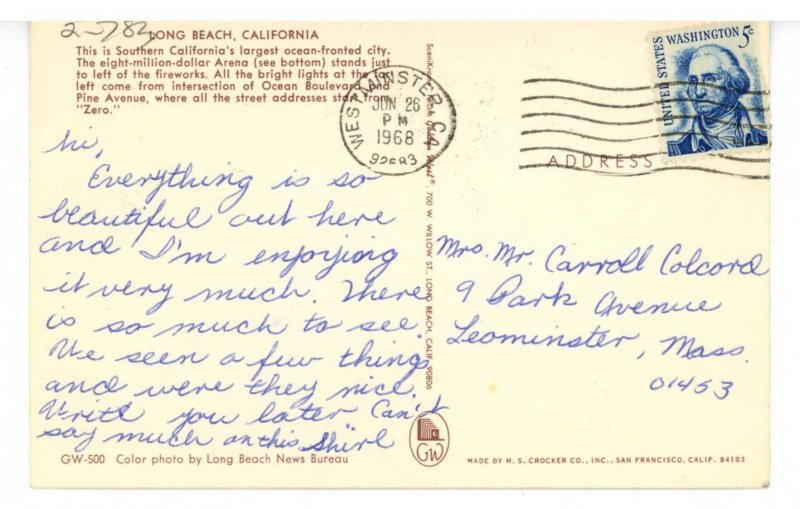 2-783
LONG BEACH, CALIFORNIA
This is Southern California's largest ocean-fronted city.
The eight-million-dollar Arena (see bottom) stands just
to left of the fireworks. All the bright lights at the far
left come from intersection of Ocean Boulevard and
Pine Avenue, where all the street addresses start from
"Zero."
hi,
Everything is so
beautiful out here
and I'm enjoying
it very much. There
is so much to see.
We seen a few things
and were they nice.
Write you later Can't
say much on this Shirl
GW-500 Color photo by Long Beach News Bureau
700 W. WILLOW ST., LONG BEACH, CALIF. 90806
GW
WESTMINSTER, CA
JUN 26
PM
1968
92683
UNITED STATES
WASHINGTON 5c
ADDRESS
Mrs. Mr. Carroll Colcord
9 Park Avenue
Leominster, Mass.
01453
MADE BY H. S. CROCKER CO., INC., SAN FRANCISCO, CALIF. 94103